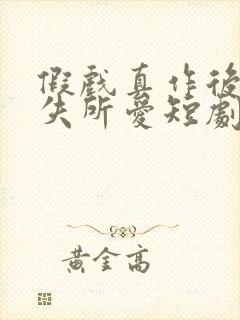 假戲真作後
失所愛短劇
黃金高